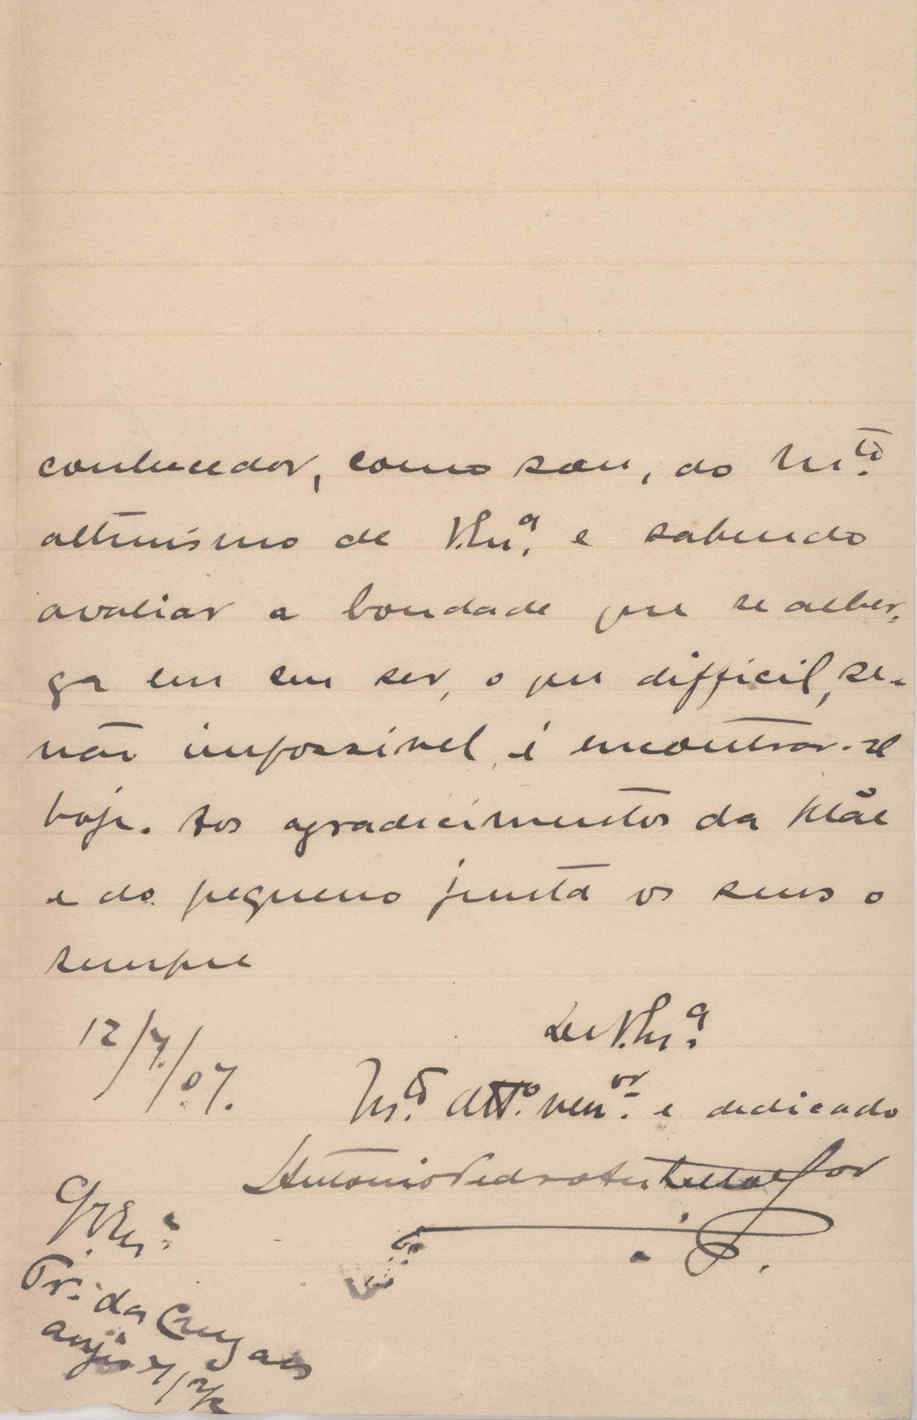 conhecedor, como sou, do M.to
altruismo de V.Ex.a e sabendo
avaliar a bondade que se alber-
ga em seu ser, o que difficil, se-
não impossivel, é encontrar-se
hoje. Aos agradecimentos da Mãe
e do pequeno junta os seus o
sempre
De V.Ex.a
12/7/07.
M.to att.o ven.or e dedicado
Antonio Pedro
Tr. da Cruz aos
Anjos